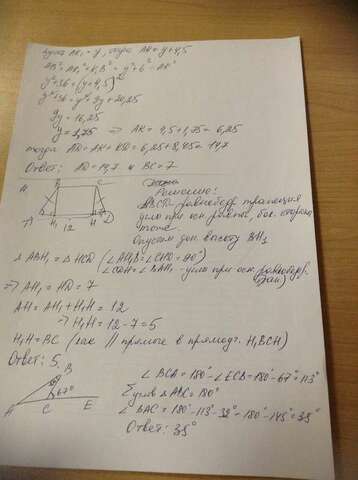 Пусть AK₁ = y, тогда AK = y+4,5
AB² = AK₁² + K₁B² = y²+6² = AK²
y²+36 = (y+4,5)²
y²+36 = y²+9y+20,25
9y = 16,25
y = 1,75 ⇒ AK = 4,5+1,75 = 6,25
тогда AD = AK + KD = 6,25 + 8,45 = 14,7
Ответ: AD = 14,7 и BC = 7
B C
A H₁ H D
12
Решение:
равнобедр трапеция
угло при осн равны, бок. стороны
тоже.
Опустим доп. высоту BH₁
△ ABH₁ = △ HCD (∠AH₁B = ∠CHD = 90°
∠CDH = ∠BAH₁ - угло при осн. равнобедр.
⇒ AH₁ = HD = 7
AH = AH₁ + H₁H = 12
⇒ H₁H = 12 - 7 = 5
H₁H = BC (как // прямые в прямоуг. H₁BCH)
Ответ: 5.
B
67°
A C E
∠ BCA = 180° - ∠ECB = 180° - 67° = 113°
Σ углов △ABC = 180°
∠ BAC = 180° - 113° - 32° = 180° - 145° = 35°
Ответ: 35°